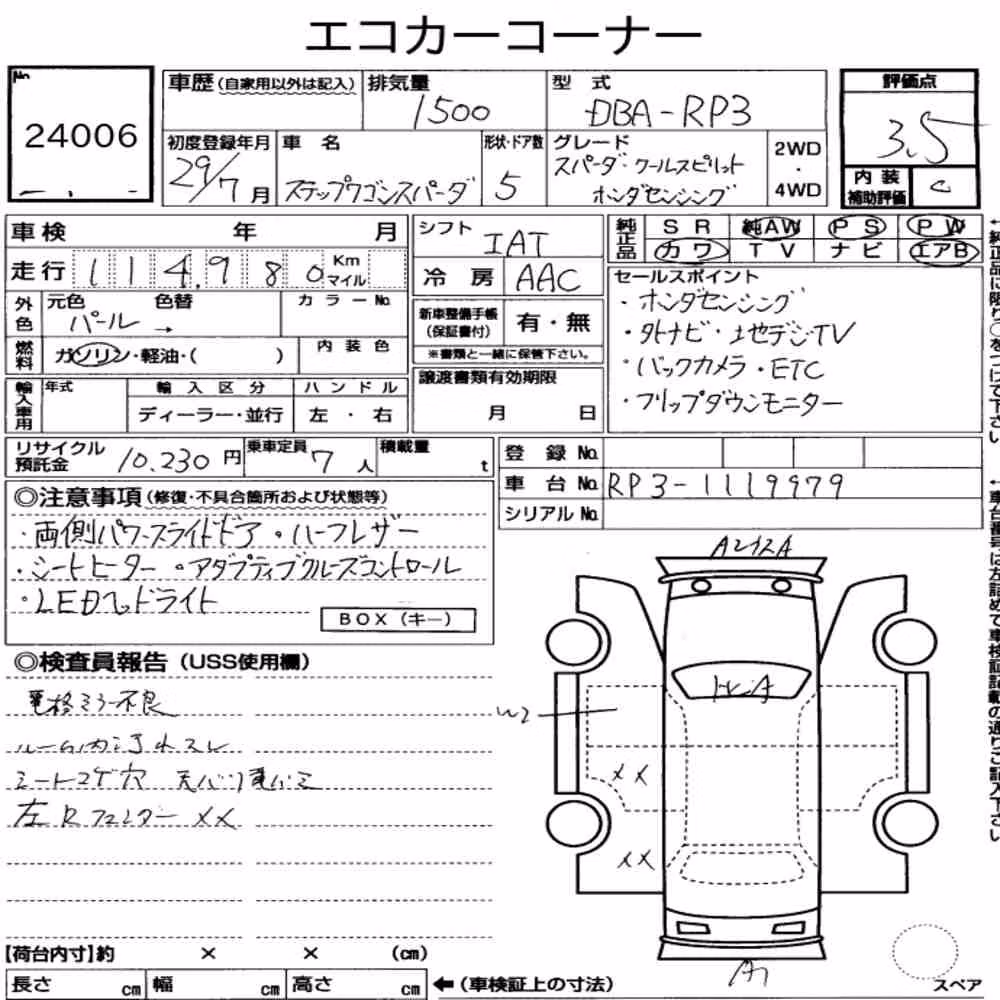 エコカーコーナー
No
24006
車歴(自家用以外は記入) 排気量 1500 型式 DBA-RP3
評価点 3.5
初度登録年月 29/7月 車名 ステップワゴンスパーダ 形状・ドア数 5 グレード スパーダ・クールスピリット ホンダセンシング 2WD・4WD
内装補助評価 C
車検 年 月
走行 114,980 Km マイル
シフト IAT
冷房 AAC
純正品 SR 純AW PS PW
カワ TV ナビ エアB
外色 元色 パール → 色替 カラーNo.
燃料 ガソリン・軽油・( ) 内装色
新車整備手帳(保証書付) 有・無
※書類と一緒に保管下さい。
セールスポイント
・ホンダセンシング
・外ナビ・地デジTV
・バックカメラ・ETC
・フリップダウンモニター
輸入車用 年式 輸入区分 ディーラー・並行 ハンドル 左・右
譲渡書類有効期限 月 日
リサイクル預託金 10.230円 乗車定員 7人 積載量 t
登録No.
車台No. RP3-1119979
シリアルNo.
◎注意事項(修復・不具合箇所および状態等)
・両側パワースライドドア・ハーフレザー
・シートヒーター・アダプティブクルーズコントロール
・LEDヘッドライト
BOX(キー)
◎検査員報告(USS使用欄)
電格ミラー不良
ルーム内汚れスレ
シートコゲ穴
左Rフェンダー XX
A
W2
XX
XX
[荷台内寸]約 × × (cm)
長さ cm 幅 cm 高さ cm ←(車検証上の寸法)
スペア
←純正品に限り○をつけて下さい
←車台番号は左詰めで車検証記載の通りご記入下さい